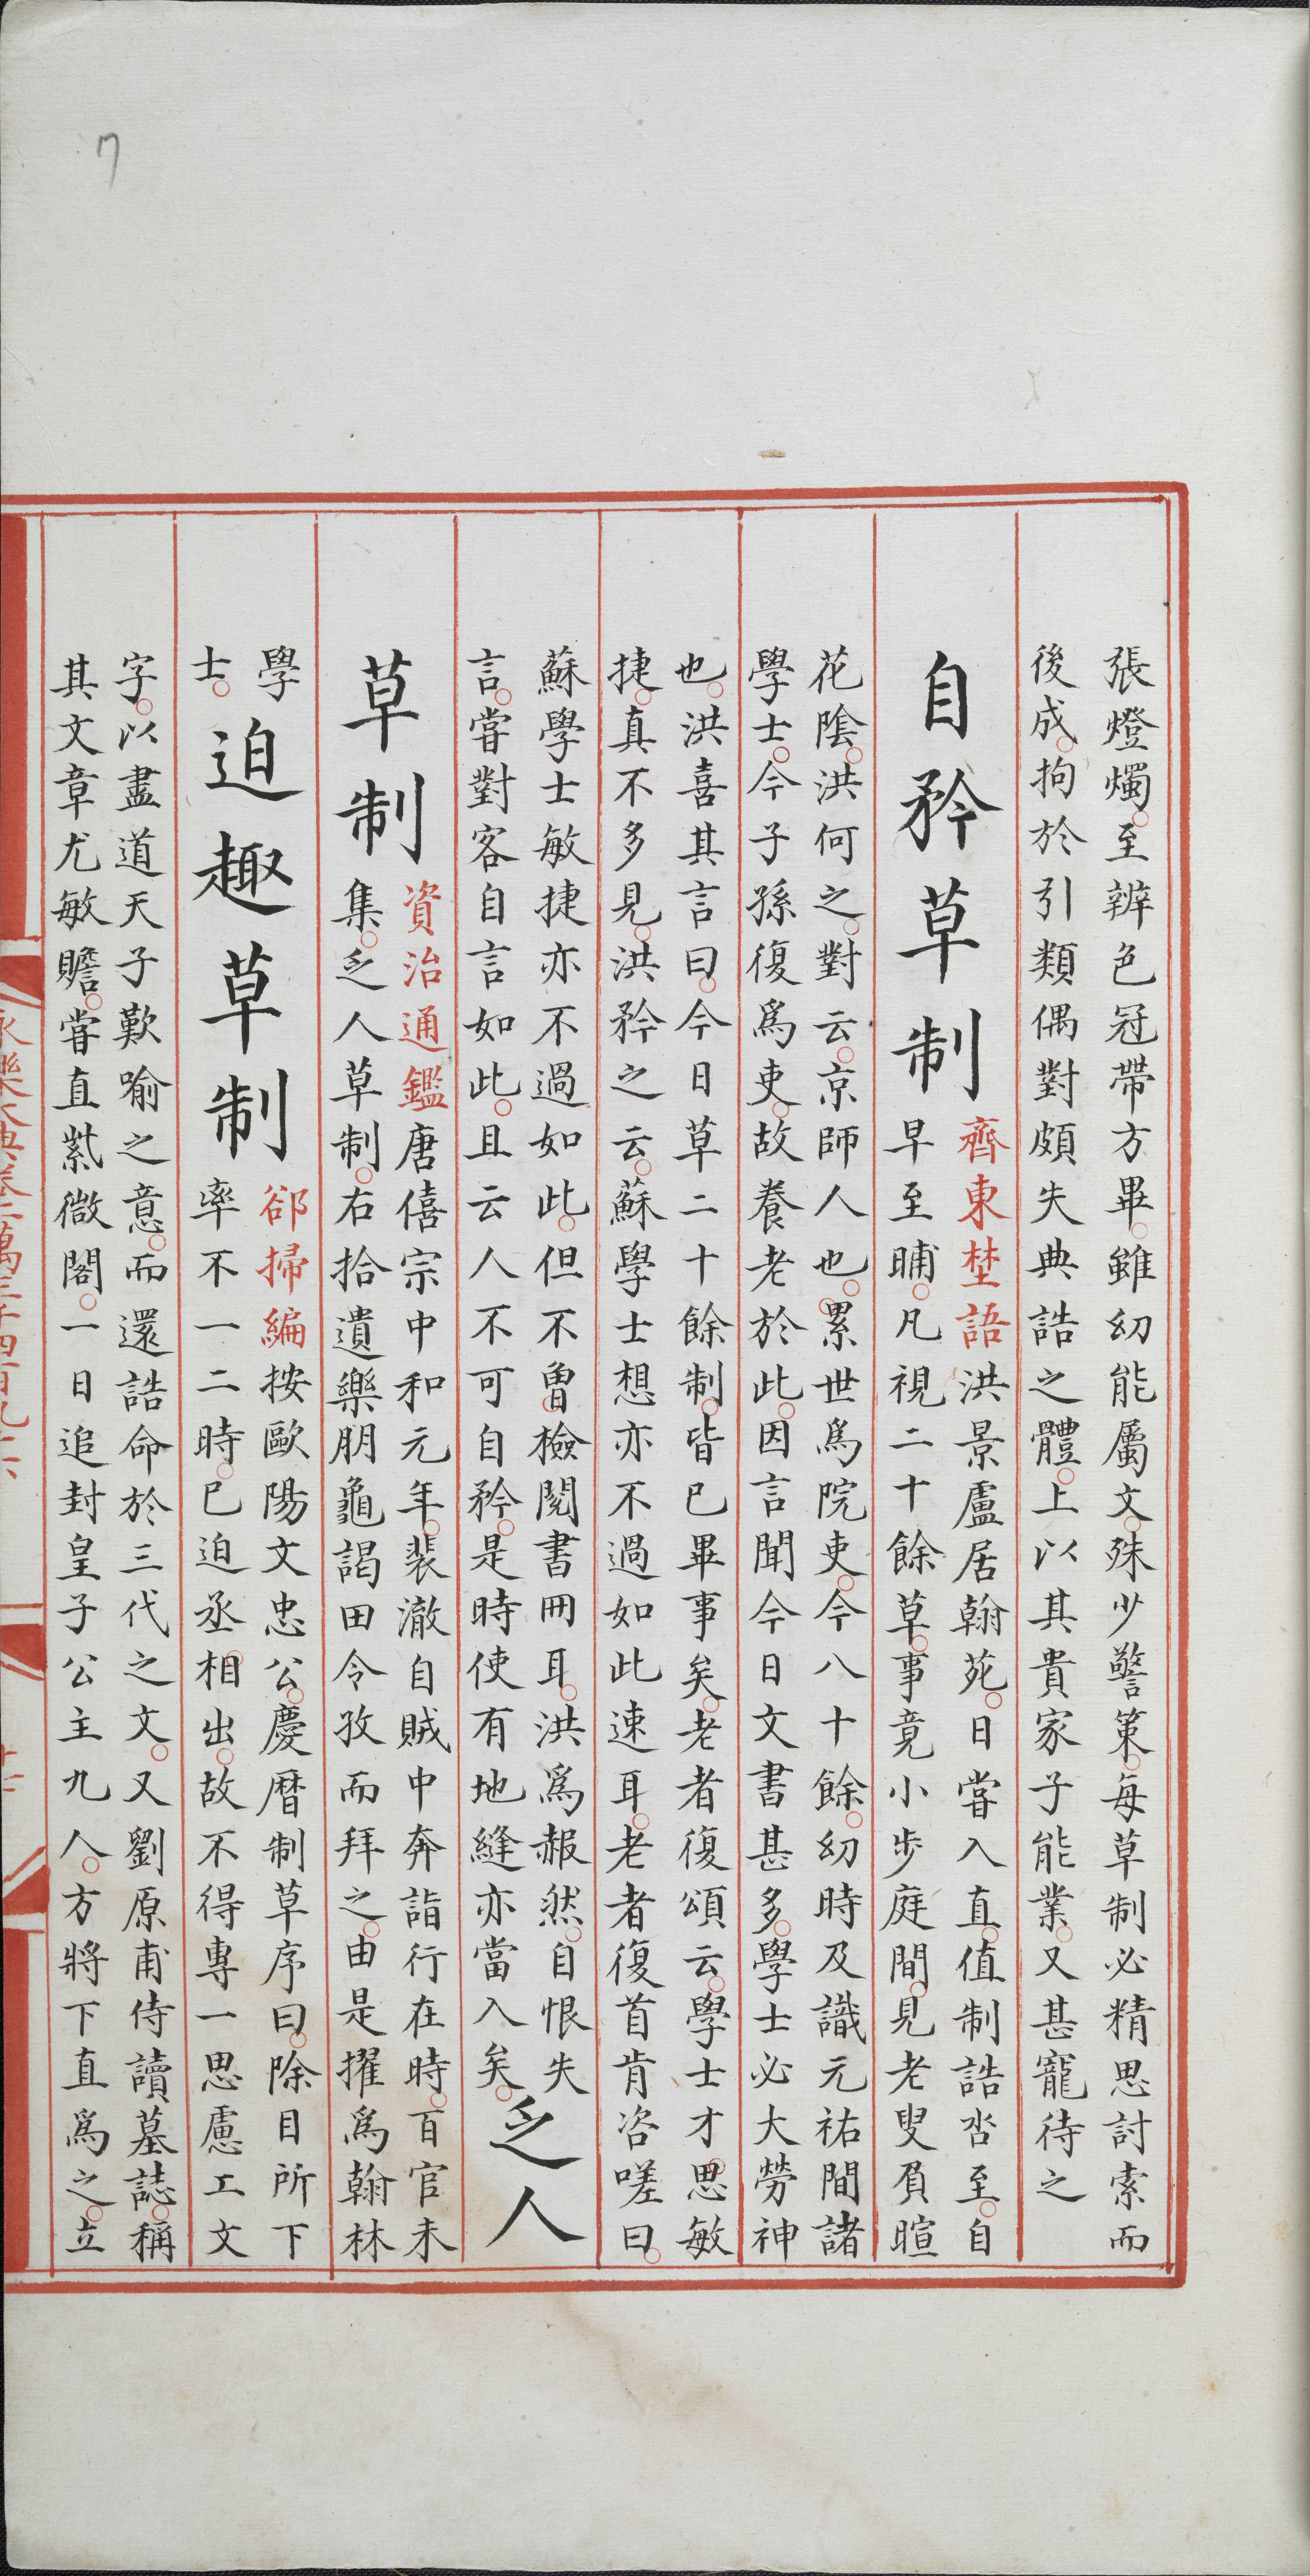 張燈燭至辨色冠帶方畢雖幼能屬文殊少警策每草制必精思討索而
後成拘於引類偶對頗失典誥之體上以其貴家子能業又甚寵待之
自矜草制
齊東埜語洪景盧居翰苑日嘗入直值制誥沓至自
早至晡凡視二十餘草事竟小步庭間見老叟負暄
花陰洪何之對云京師人也累世爲院吏今八十餘幼時及識元祐間諸
學士今子孫復爲吏故養老於此因言聞今日文書甚多學士必大勞神
也洪喜其言曰今日草二十餘制皆已畢事矣老者復頌云學士才思敏
捷真不多見洪矜之云蘇學士想亦不過如此速耳老者復首肯咨嗟曰
蘇學士敏捷亦不過如此但不曾檢閱書冊耳洪爲赧然自恨失
言嘗對客自言如此且云人不可自矜是時使有地縫亦當入矣
乏人
草制
資治通鑑唐僖宗中和元年裴澈自賊中奔詣行在時百官未
集乏人草制右拾遺樂朋龜謁田令孜而拜之由是擢爲翰林
學
士
迫趣草制
郤掃編按歐陽文忠公慶曆制草序曰除目所下
率不一二時已迫丞相出故不得專一思慮工文
字以盡道天子歎喻之意而還誥命於三代之文又劉原甫侍讀墓誌稱
其文章尤敏贍嘗直紫微閣一日追封皇子公主九人方將下直爲之立
永樂大典卷二萬